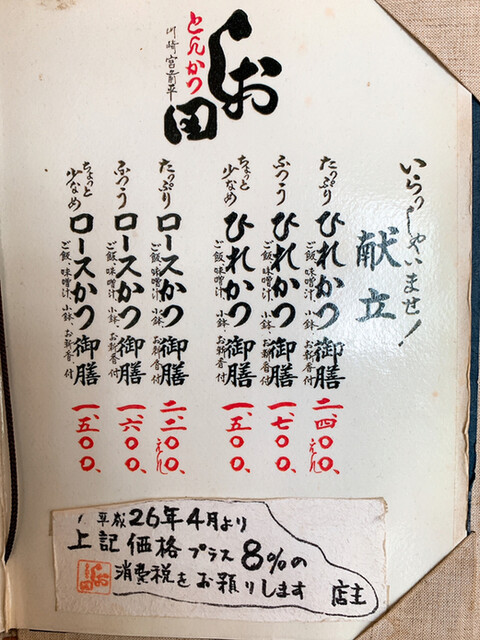 いらっしゃいませ!
献立
たっぷり ひれかつ御膳 二、四〇〇、えん
ご飯、味噌汁、小鉢、お新香付
ふつう ひれかつ御膳 一、七〇〇、
ご飯、味噌汁、小鉢、お新香付
ちょっと少なめ ひれかつ御膳 一、五〇〇、
ご飯、味噌汁、小鉢、お新香、付
たっぷり ロースかつ御膳 二、二〇〇、えん
ご飯、味噌汁、小鉢、お新香付
ふつう ロースかつ御膳 一、六〇〇、
ご飯、味噌汁、小鉢、お新香付
ちょっと少なめ ロースかつ御膳 一、五〇〇、
ご飯、味噌汁、小鉢、お新香、付
しお田
とんかつ
川崎宮前平
平成26年4月より
上記価格プラス8%の
消費税をお願りします
店主
しお田